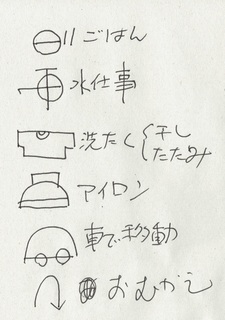 ごはん
水仕事
洗たく{干し
たたみ
アイロン
車で移動
おむかえ